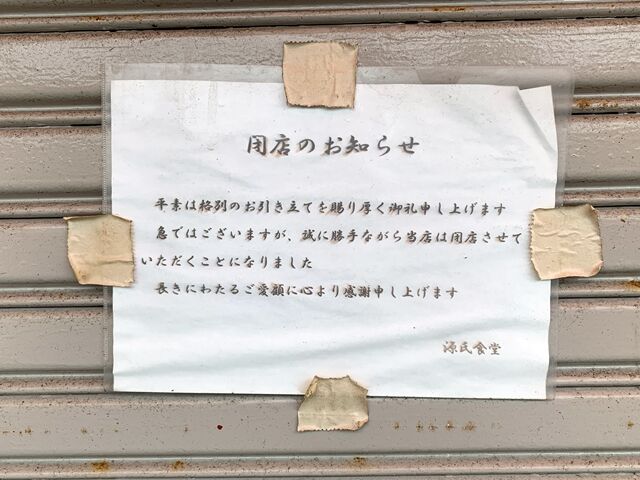 閉店のお知らせ
平素は格別のお引き立てを賜り厚く御礼申し上げます
急ではございますが、誠に勝手ながら当店は閉店させて
いただくことになりました
長きにわたるご愛顧に心より感謝申し上げます
源氏食堂